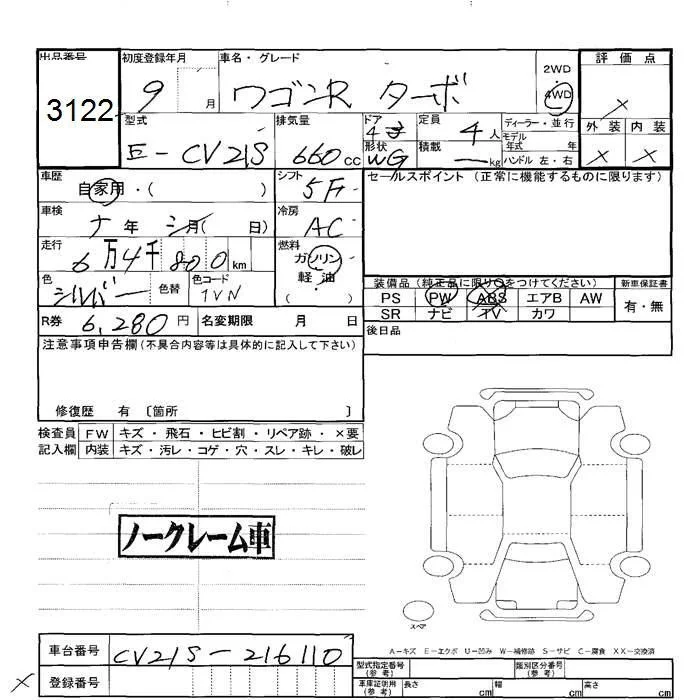 出品番号 初度登録年月 車名・グレード 評価点
3122 9 月 ワゴンR ターボ 2WD 4WD ×
型式 排気量 ドア 4 定員 4 人 ディーラー・並行 外装 内装
E-CV21S 660 cc 形状 WG 積載 — kg モデル年式 年 ハンドル 左・右 × ×
車歴 自家用・( ) シフト 5F セールスポイント (正常に機能するものに限ります)
車検 ナ 年 月( 日) 冷房 AC
走行 6万4千800 km 燃料 ガソリン 軽油 ( )
色 シルバー 色替 色コード 1VN
装備品 (純正品に限り○をつけてください) 新車保証書
PS PW ABS エアB AW 有・無
SR ナビ TV カワ
R券 6,280 円 名変期限 月 日 後日品
注意事項申告欄 (不具合内容等は具体的に記入して下さい)
修復歴 有 〔箇所 〕
検査員 FW キズ・飛石・ヒビ割・リペア跡・×要
記入欄 内装 キズ・汚レ・コゲ・穴・スレ・キレ・破レ
ノークレーム車
スペア
A-キズ E-エクボ U-凹み W-補修跡 S-サビ C-腐食 XX-交換済
車台番号 CV21S-216110 型式指定番号 (参考) 類別区分番号 (参考)
× 登録番号 車庫証明用 (参考) 長さ cm 幅 cm 高さ cm